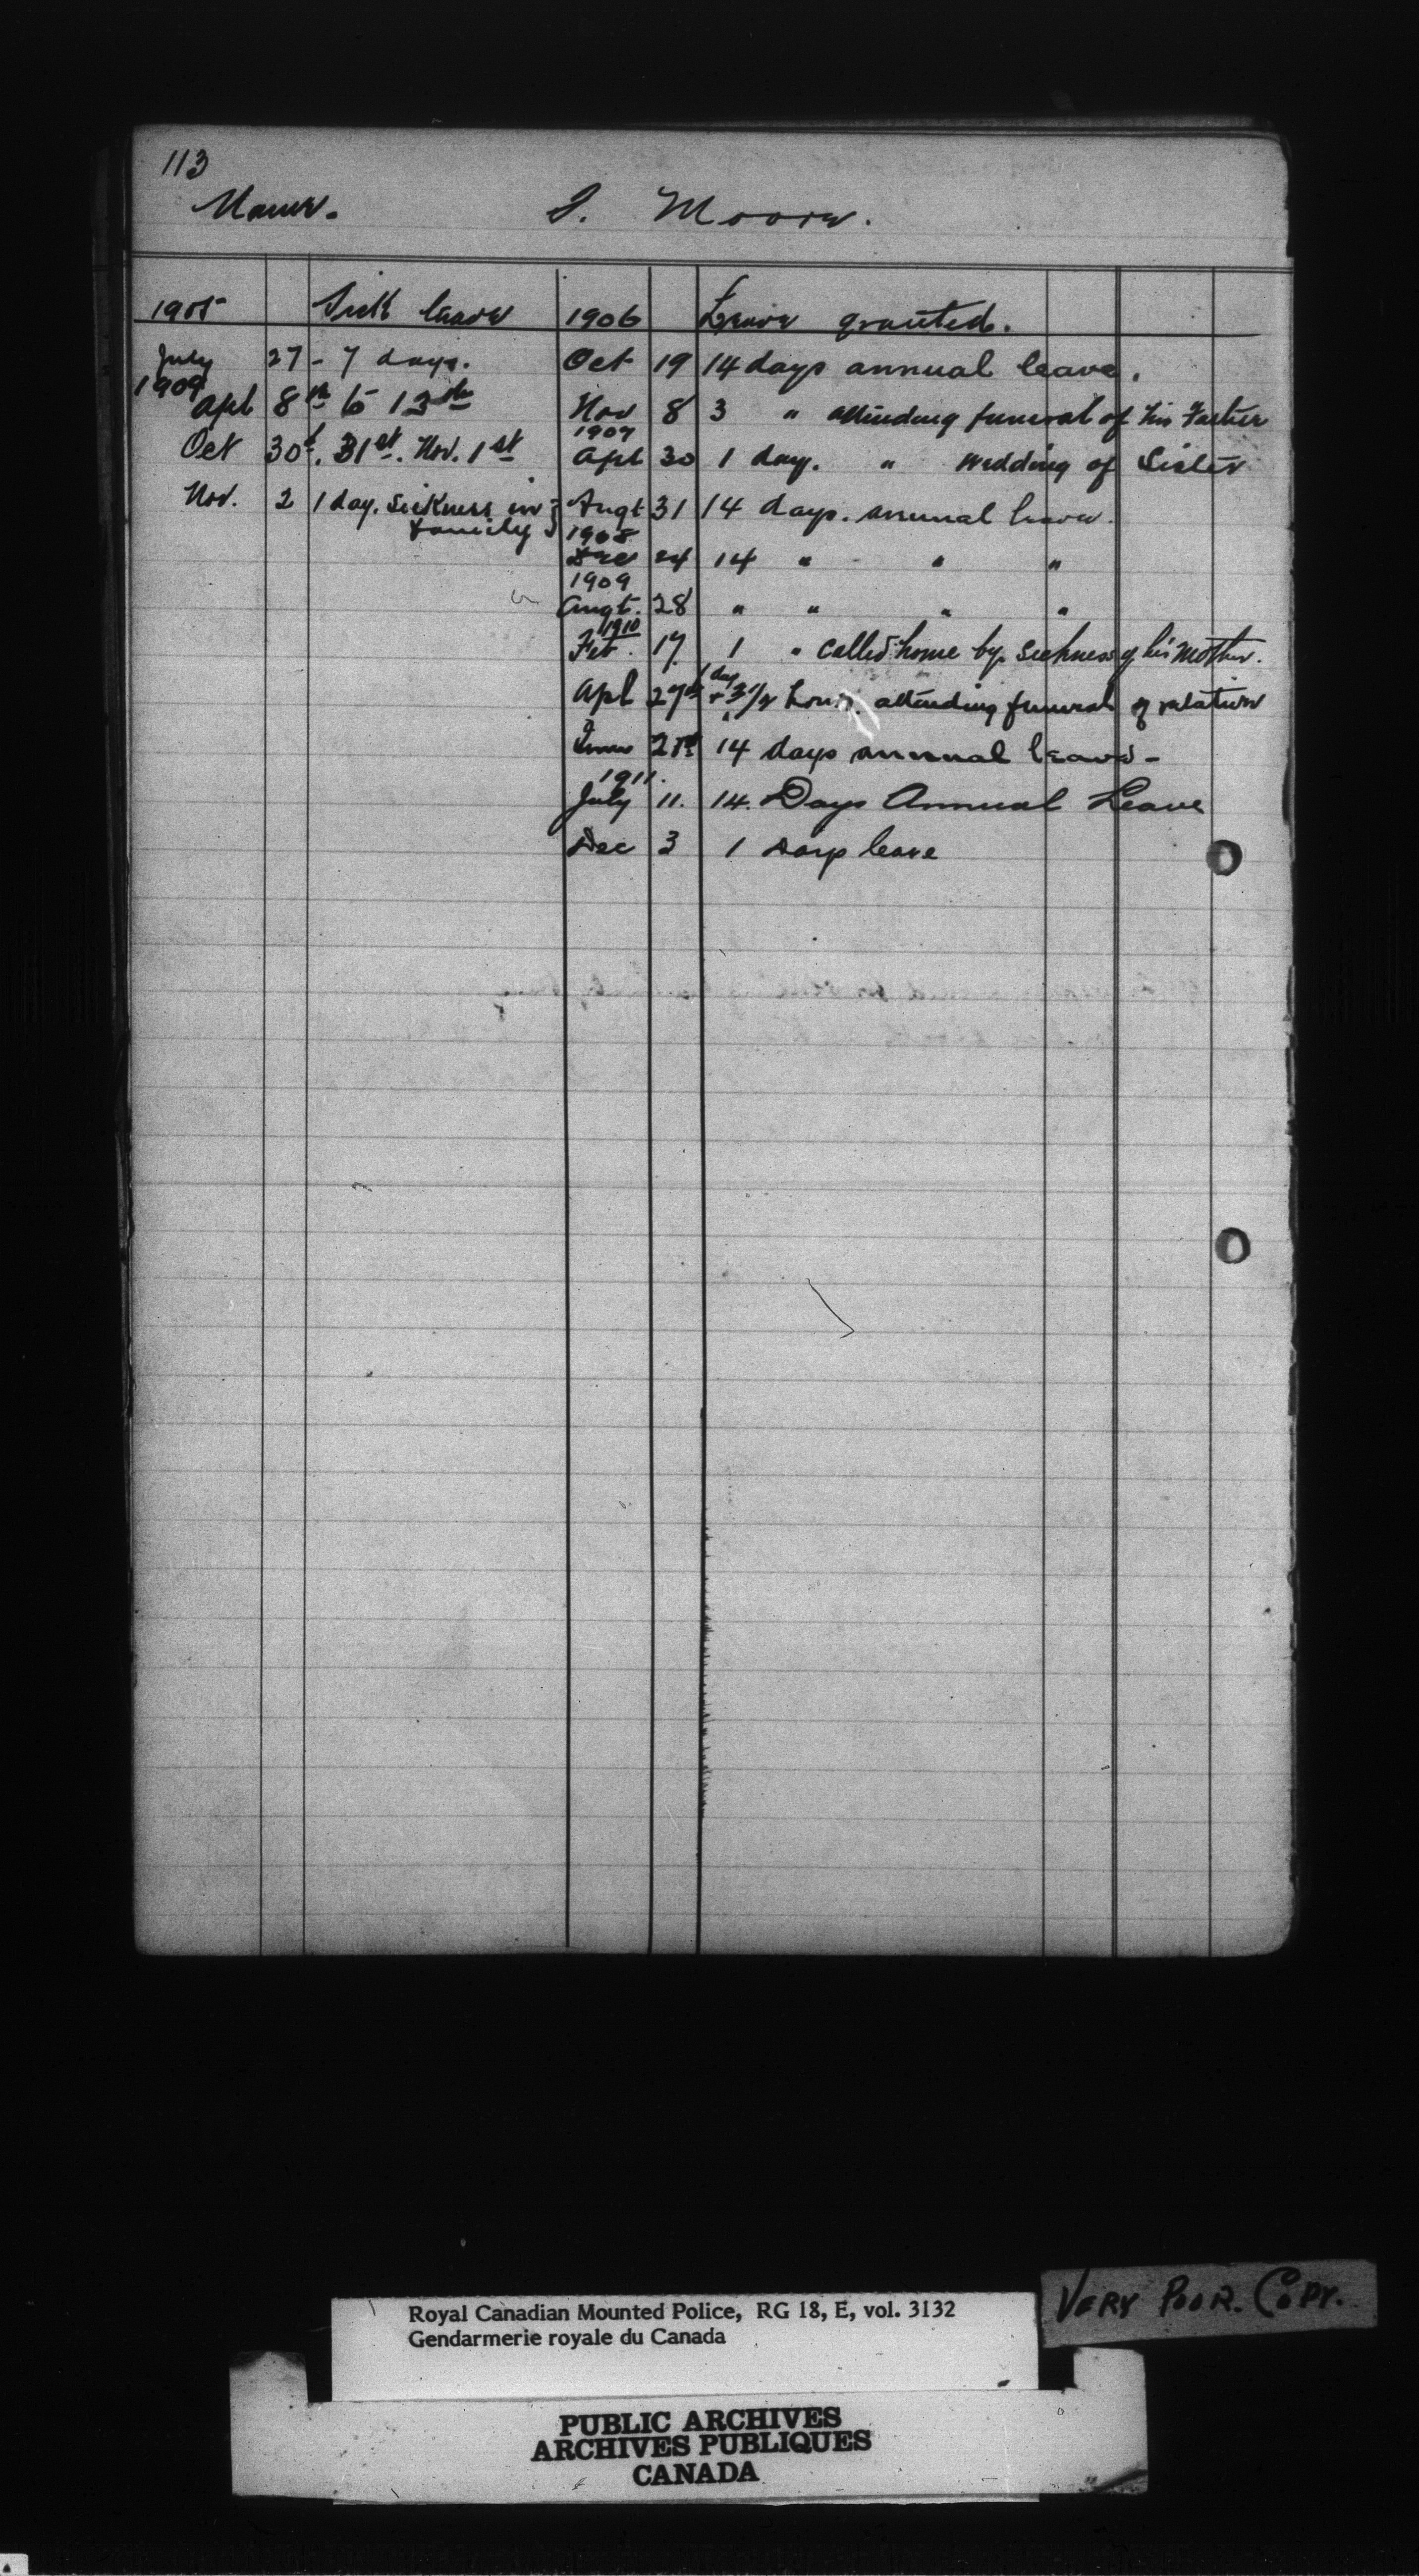 113
Name. J. Moore.
1905 Sick leave 1906 Leave granted.
July 27 - 7 days. Oct 19 14 days annual leave.
1909
Apl 8th to 13th Nov 8 3 " attending funeral of his Father
1907
Oct 30th. 31st. Nov. 1st Apl 30 1 day. " wedding of Sister
Nov. 2 1 day. Sickness in family } Augt 31 14 days. annual leave.
1908
Dec 24 14 " " "
1909
Augt. 28 " " " "
1910
Feb. 17 1 " called home by sickness of his Mother.
Apl 27th 1 day + 3 1/2 hours. attending funeral of relation
June 21st 14 days annual leave -
1911.
July 11. 14. Days Annual Leave
Dec 3 1 Days leave
Royal Canadian Mounted Police, RG 18, E, vol. 3132
Gendarmerie royale du Canada
VERY POOR. COPY.
PUBLIC ARCHIVES
ARCHIVES PUBLIQUES
CANADA